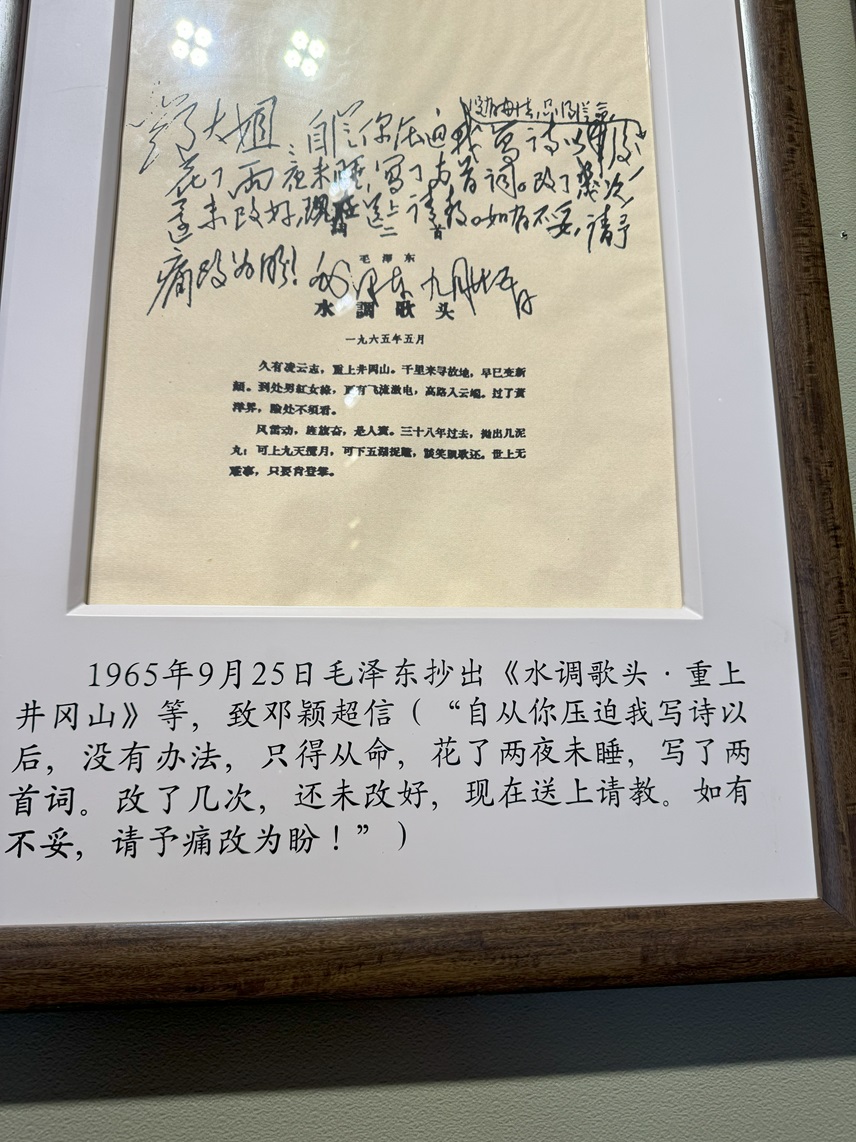 邓大姐：自从你压迫我写诗以后，
没有办法，只得从命，
花了两夜未睡，写了两首词。改了几次，
还未改好，现在送上请教。如有不妥，请予
痛改为盼！毛泽东 九月廿五日
二首
毛泽东
水調歌头
一九六五年五月
久有凌云志，重上井岡山。千里来寻故地，早已变新
顏。到处男紅女綠，更有飞流激电，高路入云端。过了黃
洋界，险处不须看。
风雷动，旌旗奋，是人寰。三十八年过去，抛出几泥
丸；可上九天攬月，可下五湖捉鼈，談笑凱歌还。世上无
难事，只要肯登攀。
1965年9月25日毛泽东抄出《水调歌头·重上
井冈山》等，致邓颖超信（“自从你压迫我写诗以
后，没有办法，只得从命，花了两夜未睡，写了两
首词。改了几次，还未改好，现在送上请教。如有
不妥，请予痛改为盼！”）